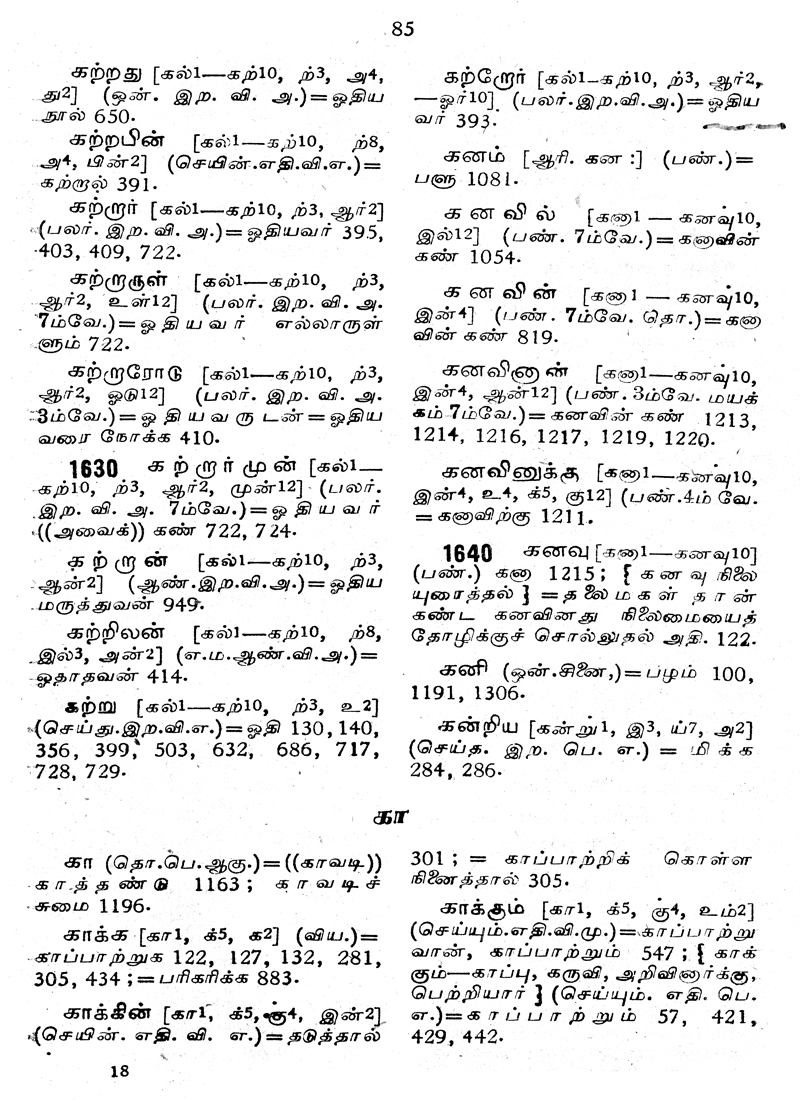 85
கற்றது [கல்1—கற்10, ற்3, அ4,
து2] (ஒன். இற. வி. அ.)=ஓதிய
நூல் 650.
கற்றபின் [கல்1—கற்10, ற்8,
அ4, பின்2] (செயின்.எதி.வி.எ.)=
கற்றால் 391.
கற்றார் [கல்1—கற்10, ற்3, ஆர்2]
(பலர். இற. வி. அ.)=ஓதியவர் 395,
403, 409, 722.
கற்றாருள் [கல்1—கற்10, ற்3,
ஆர்2, உள்12] (பலர். இற. வி. அ.
7ம்வே.)=ஓதியவர் எல்லாருள்
ளும் 722.
கற்றாரோடு [கல்1—கற்10, ற்3,
ஆர்2, ஒடு12] (பலர். இற. வி. அ.
3ம்வே.)=ஓதியவருடன்=ஓதிய
வரை நோக்க 410.
1630 கற்றார்முன் [கல்1—
கற்10, ற்3, ஆர்2, முன்12] (பலர்.
இற. வி. அ. 7ம்வே.)=ஓதியவர்
((அவைக்)) கண் 722, 724.
கற்றான் [கல்1—கற்10, ற்3,
ஆன்2] (ஆண்.இற.வி.அ.)=ஓதிய
மருத்துவன் 949.
கற்றிலன் [கல்1—கற்10, ற்8,
இல்3, அன்2] (எ.ம.ஆண்.வி.அ.)=
ஓதாதவன் 414.
கற்று [கல்1—கற்10, ற்3, உ2]
(செய்து.இற.வி.எ.)=ஓதி 130, 140,
356, 399, 503, 632, 686, 717,
728, 729.
கற்றோர் [கல்1—கற்10, ற்3, ஆர்2,
—ஓர்10] (பலர்.இற.வி.அ.)=ஓதிய
வர் 393.
கனம் [ஆரி. கன :] (பண்.)=
பளு 1081.
கனவில் [கனா1 — கனவ்10,
இல்12] (பண். 7ம்வே.)=கனாவின்
கண் 1054.
கனவின் [கனா1 — கனவ்10,
இன்4] (பண். 7ம்வே. தொ.)=கனா
வின் கண் 819.
கனவினான் [கனா1—கனவ்10,
இன்4, ஆன்12] (பண். 3ம்வே. மயக்
கம் 7ம்வே.)=கனவின் கண் 1213,
1214, 1216, 1217, 1219, 1220.
கனவினுக்கு [கனா1—கனவ்10,
இன்4, உ4, க்5, கு12] (பண்.4ம் வே.
=கனாவிற்கு 1211.
1640 கனவு [கனா1—கனவு10]
(பண்.) கனா 1215; { கனவு நிலை
யுரைத்தல் } =தலைமகள் தான்
கண்ட கனவினது நிலைமையைத்
தோழிக்குச் சொல்லுதல் அதி. 122.
கனி (ஒன்.சினை,)=பழம் 100,
1191, 1306.
கன்றிய [கன்று1, இ3, ய்7, அ2]
(செய்த. இற. பெ. எ.) = மிக்க
284, 286.
கா
கா (தொ.பெ.ஆகு.)=((காவடி))
காத்தண்டு 1163; காவடிச்
சுமை 1196.
காக்க [கா1, க்5, க2] (விய.)=
காப்பாற்றுக 122, 127, 132, 281,
305, 434 ;=பரிகரிக்க 883.
காக்கின் [கா1, க்5, கு4, இன்2]
(செயின். எதி. வி. எ.)=தடுத்தால்
301 ; = காப்பாற்றிக் கொள்ள
நினைத்தால் 305.
காக்கும் [கா1, க்5, கு4, உம்2]
(செய்யும்.எதி.வி.மு.)=காப்பாற்று
வான், காப்பாற்றும் 547 ; { காக்
கும்—காப்பு, கருவி, அறிவினார்க்கு,
பெற்றியார் } (செய்யும். எதி. பெ.
எ.)=காப்பாற்றும் 57, 421,
429, 442.
18